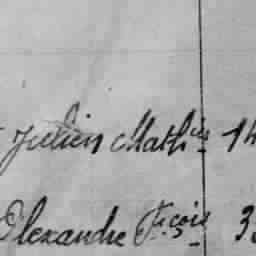 Julien Math^is 14
Alexandre F^çois 3